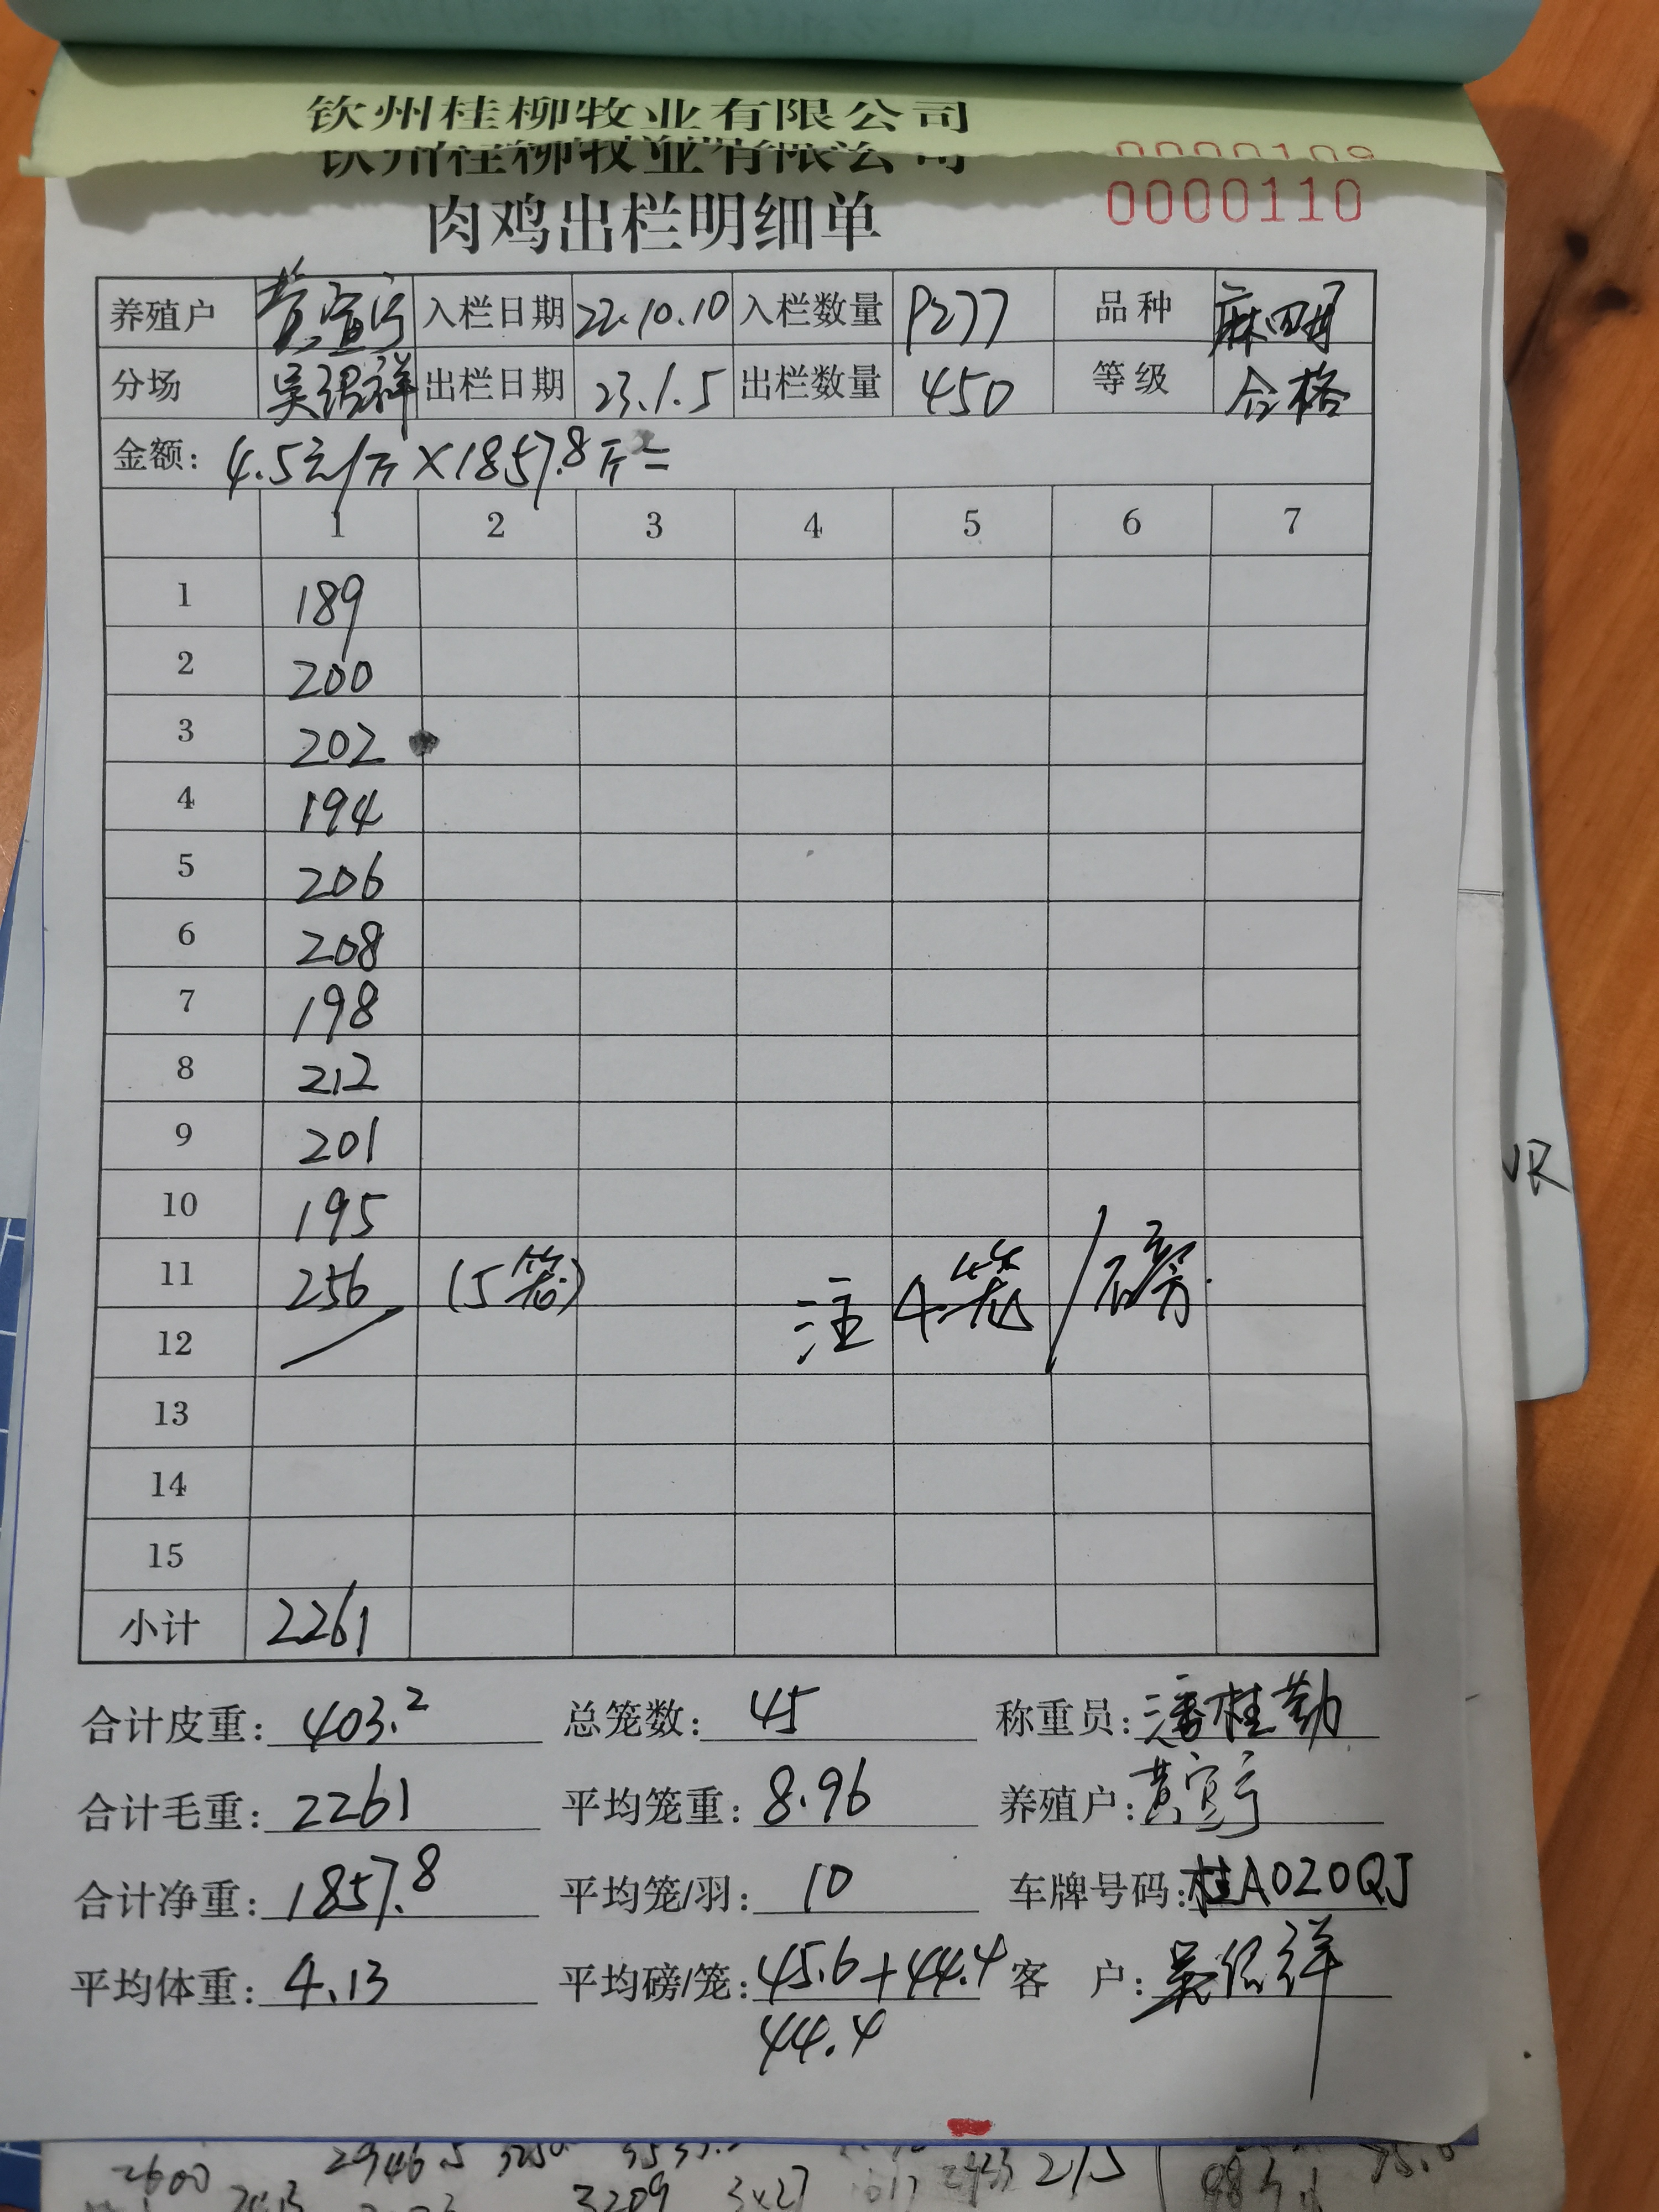 钦州桂柳牧业有限公司
钦州桂柳牧业有限公司
0000109
肉鸡出栏明细单 0000110
养殖户 黄宣宁 入栏日期 22.10.10 入栏数量 P277 品种
分场 出栏日期 23.1.5 出栏数量 450 等级 合格
金额: 4.5元/斤×1857.8斤=
1 2 3 4 5 6 7
1 189
2 200
3 202
4 194
5 206
6 208
7 198
8 212
9 201
10 195
11 256 (5笼) 注 4笼/磅.
12
13
14
15
小计 2261
合计皮重: 403.2 总笼数: 45 称重员: 潘桂勤
合计毛重: 2261 平均笼重: 8.96 养殖户: 黄宣宁
合计净重: 1857.8 平均笼/羽: 10 车牌号码: 桂A020QJ
平均体重: 4.13 平均磅/笼: 45.6+44.4 客 户:
44.4
2600 2946.5 3209 3x27 215